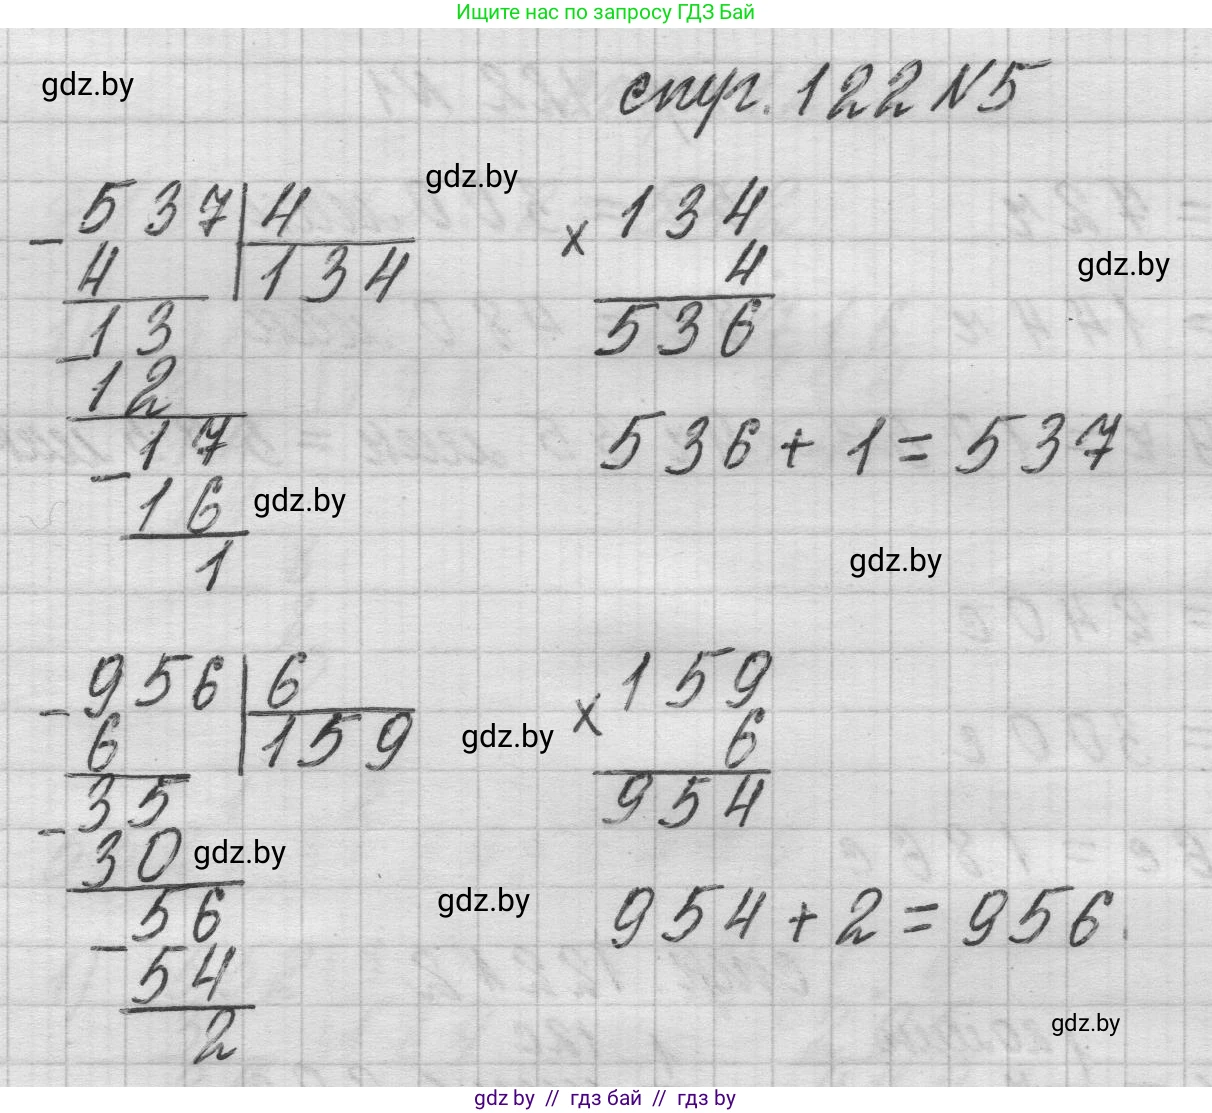 Ищите нас по запросу ГДЗ Бай
gdz.by
стр. 122 №5
gdz.by
537 4
- 4 134
13
- 12
17
- 16
1
× 134
4
536
gdz.by
536 + 1 = 537
gdz.by
gdz.by
956 6
- 6 159
35
- 30
56
- 54
2
× 159
6
954
gdz.by
gdz.by
gdz.by
954 + 2 = 956.
gdz.by
gdz by // гдз бай // gdz by